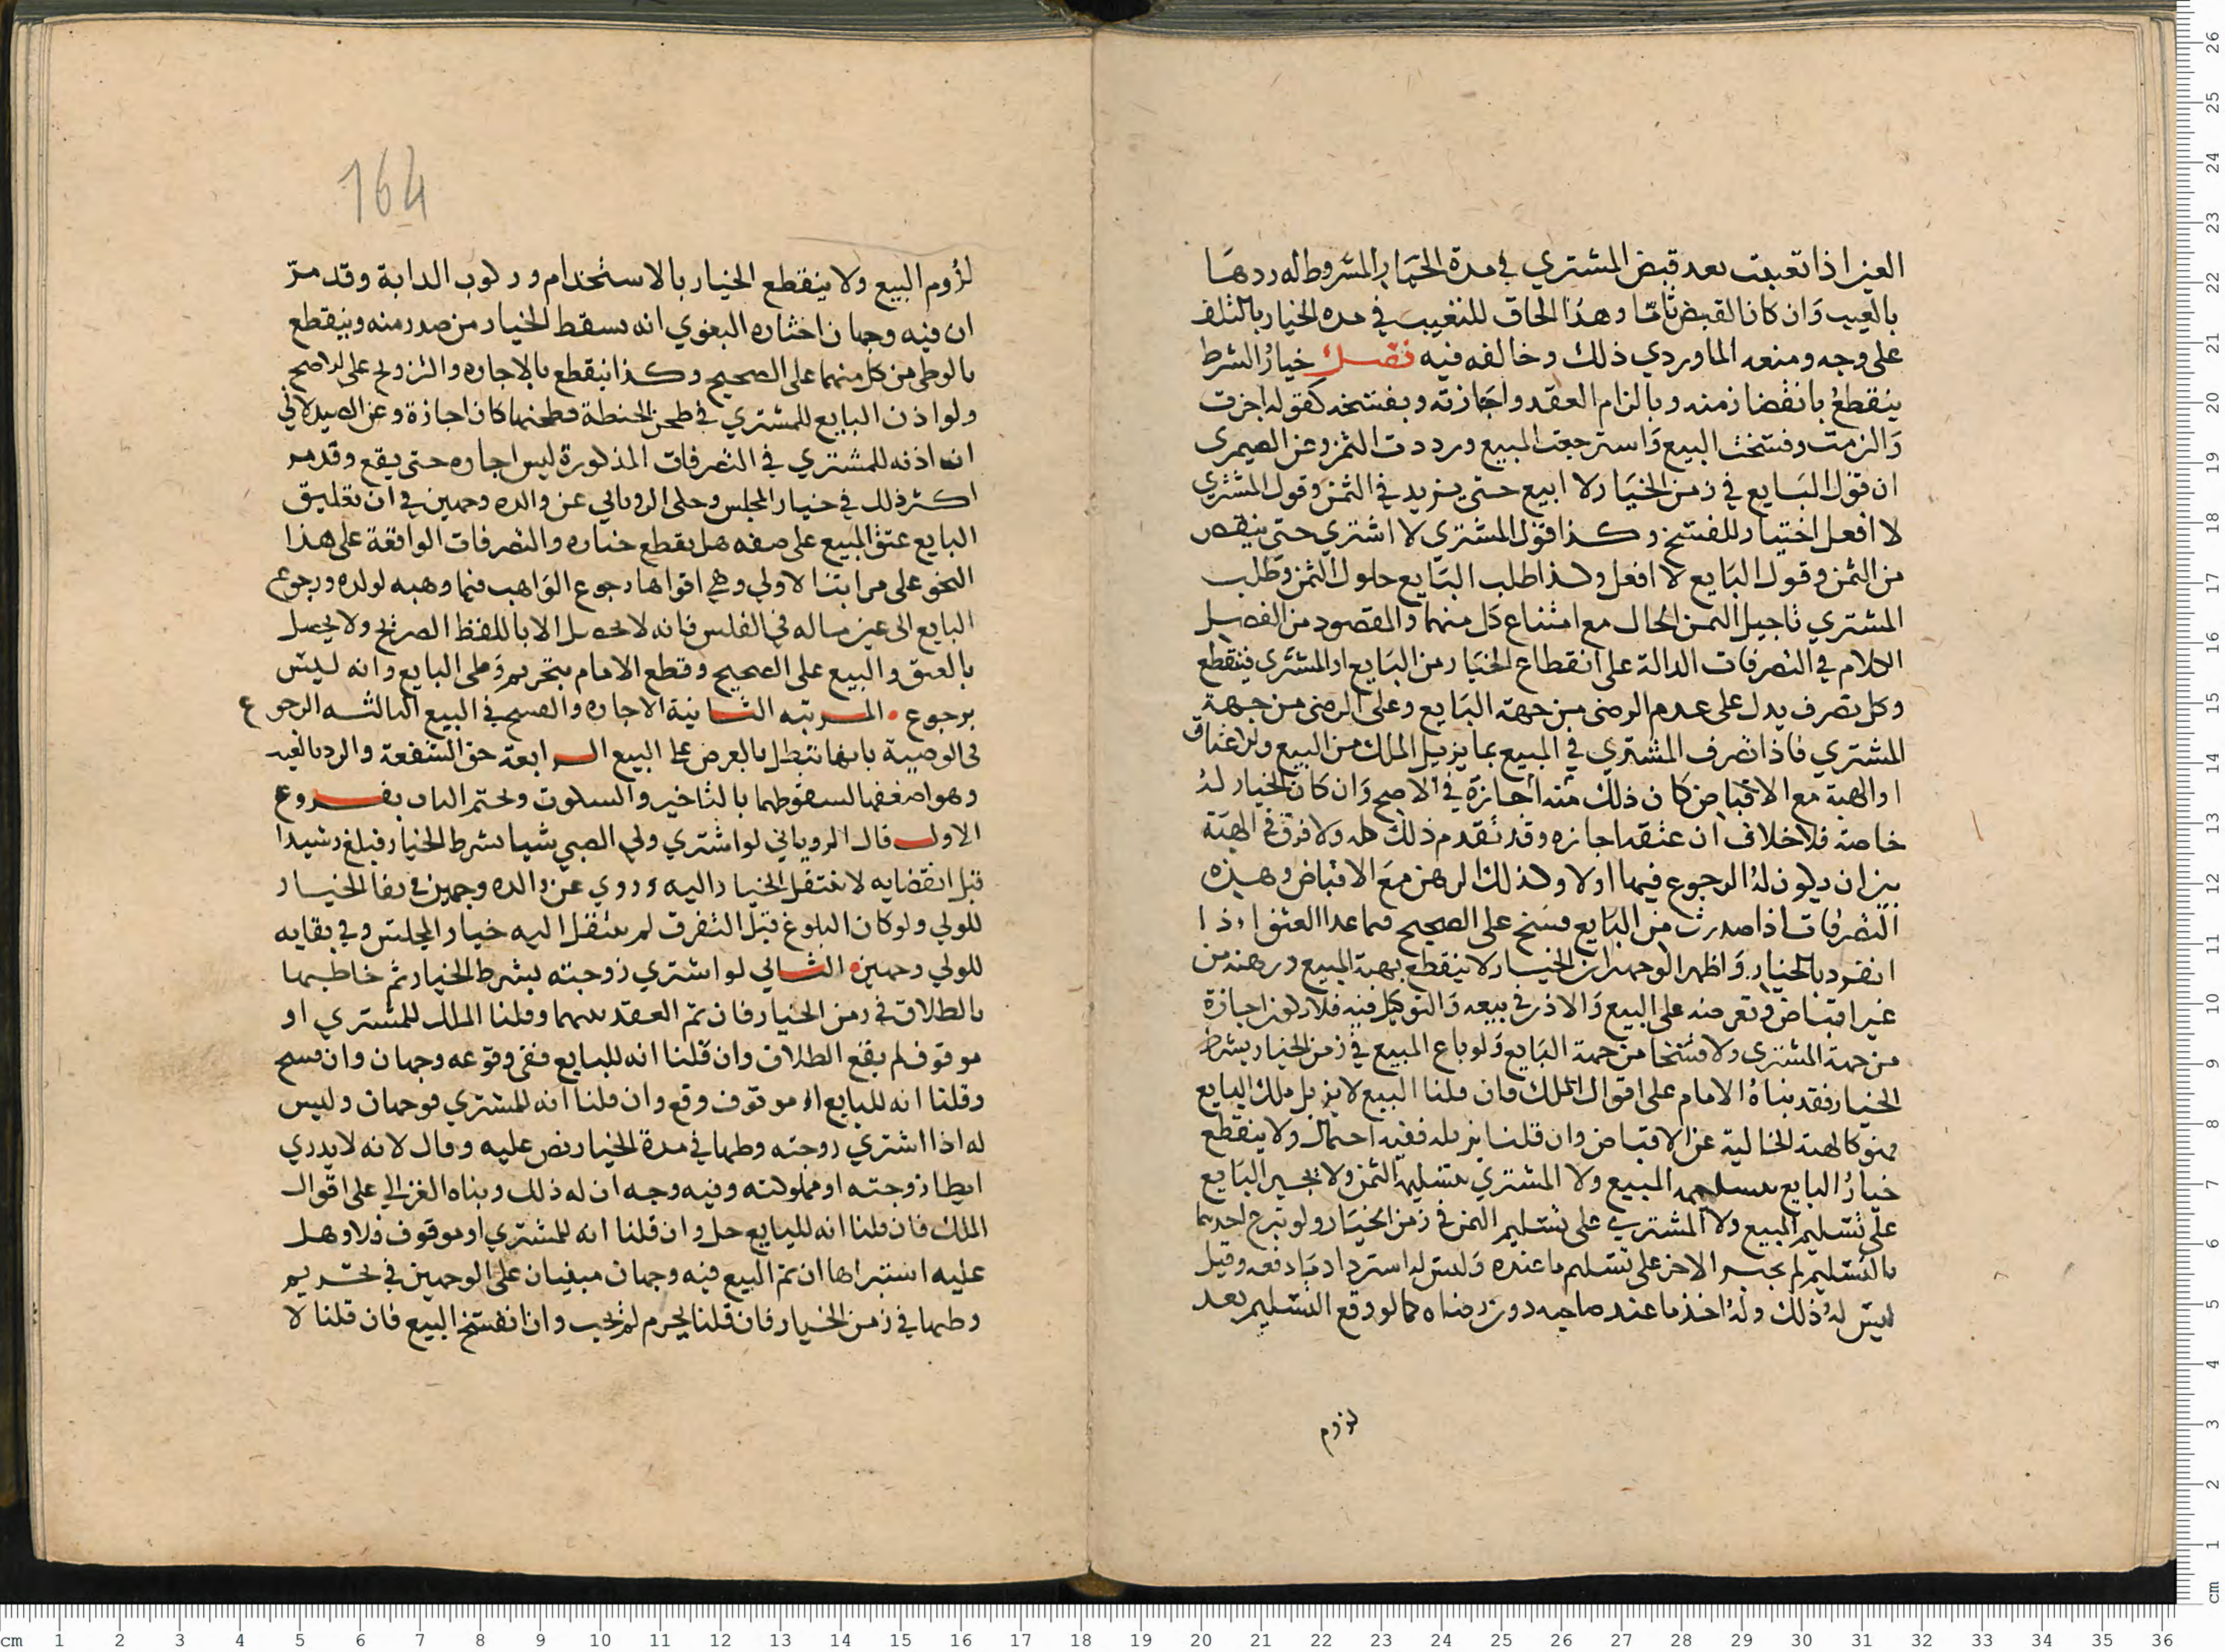 العين اذا تعيبت بعد قبض المشتري في مدة الخيار المشروط له ردها
بالعيب وان كان القبض تاما وهذا الحاق للتعييب في مده الخيار بالتلف
على وجه ومنعه الماوردي ذلك وخالفه فيه فصل خيار الشرط
ينقطع بانقضا زمنه وبالزام العقد واجازته وبفسخه كقوله اجزت
والزمت وفسخت البيع واسترجعت المبيع ورددت الثمن وعن الصيمري
ان قول البايع في زمن الخيار لا ابيع حتى يزيد في الثمن وقول المشتري
لا افعل اختيار للفسخ وكذا قول المشتري لا اشتري حتى ينقص
من الثمن وقول البايع لا افعل وكذا طلب البايع حلول الثمن وطلب
المشتري تاجيل الثمن الحال مع امتناع كل منهما والمقصود من الفصل
الكلام في التصرفات الدالة على انقطاع الخيار من البايع او المشتري فينقطع
وكل تصرف يدل على عدم الرضى من جهة البايع وعلى الرضى من جهة
المشتري فاذا تصرف المشتري في المبيع بما يزيل الملك من البيع والاعتاق
او الهبة مع الاقباض كان ذلك منه اجازة في الاصح وان كان الخيار له
خاصة فلا خلاف ان عتقه اجازه وقد تقدم ذلك كله ولا فرق في الهبة
بين ان يكون له الرجوع فيها اولا وكذلك الرهن مع الاقباض وهذه
التصرفات اذا صدرت من البايع فسخ على الصحيح فيما عدا العتق اذا
انفرد بالخيار واظهر الوجهين ان الخيار لا ينقطع بهبة المبيع ورهنه من
غير اقباض وتعرضه على البيع والاذن في بيعه والتوكيل فيه فلا يكون اجازة
من جهة المشتري ولا فسخا من جهة البايع ولو باع المبيع في زمن الخيار بشرط
الخيار فقد بناه الامام على اقوال الملك فان قلنا البيع لا يزيل ملك البايع
فهو كالهبة الخالية عن الاقباض وان قلنا يزيله ففيه احتمال ولا ينقطع
خيار البايع بتسليمه المبيع ولا المشتري بتسليمه الثمن ولا يجبر البايع
على تسليم المبيع ولا المشتري على تسليم الثمن في زمن الخيار ولو تبرع احدهما
بالتسليم لم يجبر الاخر على تسليم ما عنده وليس له استرداد ما دفعه وقيل
ليس له ذلك وله اخذ ما عند صاحبه دون رضاه كما لو وقع التسليم بعد
لزوم
164
لزوم البيع ولا ينقطع الخيار بالاستخدام وركوب الدابة وقد مرّ
ان فيه وجهان اختاره البغوي انه يسقط الخيار من صدر منه وينقطع
بالوطى من كل منهما على الصحيح وكذا ينقطع بالاجاره والتزويج على الاصح
ولو اذن البايع للمشتري في طحن الحنطة فطحنها كان اجازة وعن الصيدلاني
ان اذنه للمشتري في التصرفات المذكورة ليس اجاره حتى يقع وقد مر
اكثر ذلك في خيار المجلس وحكى الروياني عن والده وجهين في ان تعليق
البايع عتق المبيع على صفه هل يقطع خياره والتصرفات الواقعة على هذا
النحو على مراتبا الاولي وهي اقواها رجوع الواهب فيما وهبه لولده ورجوع
البايع الى عين ماله في الفلس فانه لا يحصل الا باللفظ الصريح ولا يحصل
بالعتق والبيع على الصحيح وقطع الامام بتحريم وطى البايع وانه ليس
برجوع المرتبه الثانية الاجاره والفسخ في البيع الثالثه الرجوع
في الوصية بانها تبطل بالعرض على البيع الرابعة حق الشفعة والرد بالعيب
وهو اضعفها لسقوطهما بالتاخير والسكوت ونختم الباب بفروع
الاول قال الروياني لو اشتري ولي الصبي شيا بشرط الخيار فبلغ رشيدا
قبل انقضايه لا ينتقل الخيار اليه وروي عن والده وجهين في بقا الخيار
للولي ولو كان البلوغ قبل التفرق لم ينتقل اليه خيار المجلس وفي بقايه
للولي وجهين الثاني لو اشتري زوجته بشرط الخيار ثم خاطبها
بالطلاق في زمن الخيار فان تم العقد بينهما وقلنا الملك للمشتري او
موقوف لم يقع الطلاق وان قلنا انه للبايع ففي وقوعه وجهان وان فسخ
وقلنا انه للبايع او موقوف وقع وان قلنا انه للمشتري فوجهان وليس
له اذا اشتري زوجته وطيها في مدة الخيار نص عليه وقال لانه لا يدري
ايطا زوجته او مملوكته وفيه وجه ان له ذلك وبناه الغزالي على اقوال
الملك فان قلنا انه للبايع حل وان قلنا انه للمشتري او موقوف فلا وهل
عليه استبراها ان تم البيع فيه وجهان مبنيان على الوجهين في تحريم
وطيها في زمن الخيار فان قلنا يحرم لم يجب وان انفسخ البيع فان قلنا لا